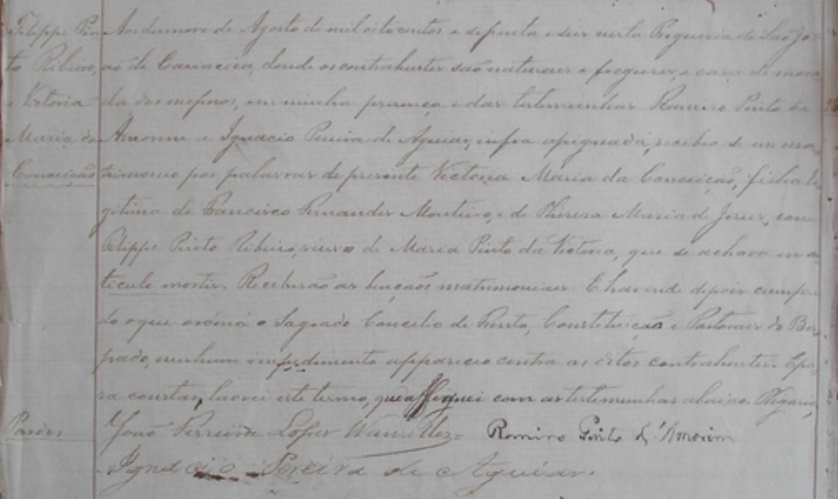 Felippe Pin-
to Ribeiro,
e Victoria
Maria da
Conceição
Aos dezenove de Agosto de mil oito centos e setenta e seis nesta Freguezia de São Jo-
ão de Cariacica, donde os contrahentes são naturaes e freguezes, e casa de mora
da dos mesmos, em minha presença e das testemunhas Ramiro Pinto de
Amorim e Ignacio Pereira de Aguiar, infra assignados, recebeo-se em ma-
trimonio por palavras de presente Victoria Maria da Conceição, filha le
gitima de Francisco Fernandes Monteiro, e de Thereza Maria de Jesus, com
Felippe Pinto Ribeiro, viuvo de Maria Pinto da Victoria, que se achava in ar
ticulo mortis. Receberão as bençãos matrimoniaes. E havend depois cumpri-
do o que ordena o Sagrado Concilio de Trento, Constituição e Pastoraes do Bis-
pado, nenhum impedimento appareceo contra os ditos contrahentes. E pa-
ra constar, lavrei este termo, que assignei com as testemunhas abaixo. Vigario,
João Ferreira Lopes Ramiro Pinto d'Amorim
Ignacio Pereira de Aguiar.